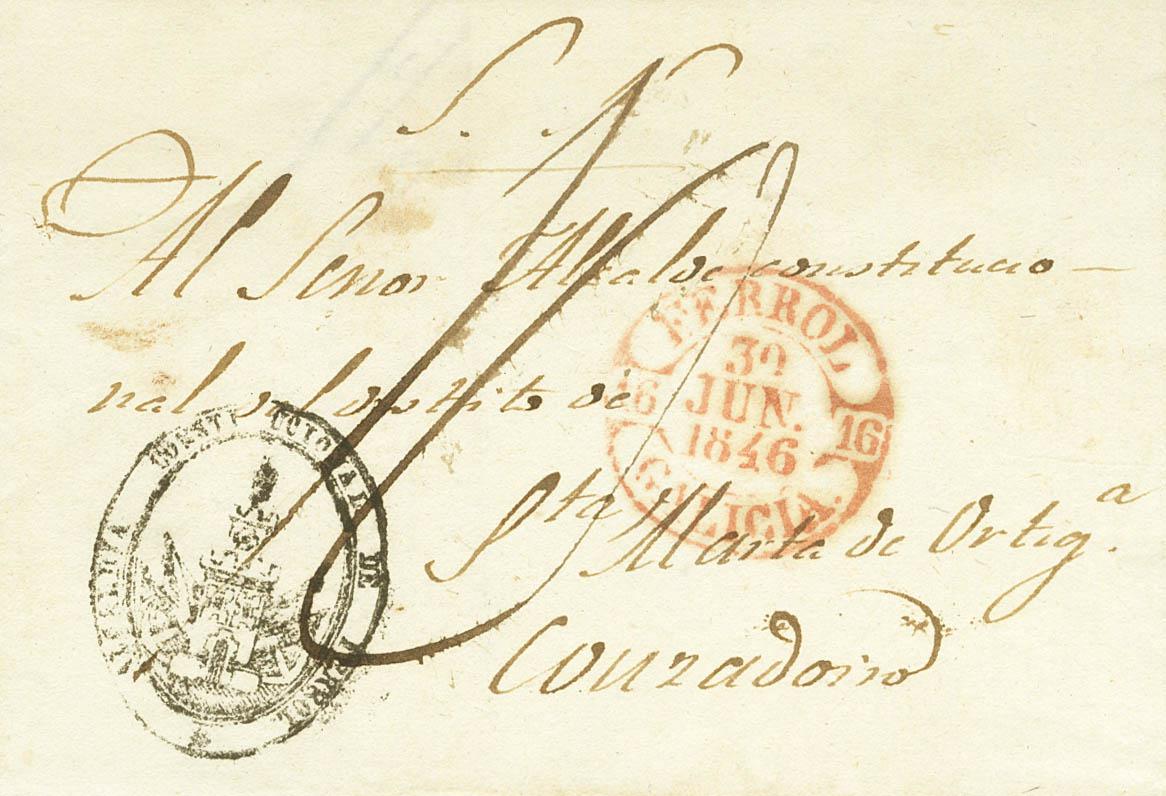 S. N.
Al Señor Alcalde constitucio-
nal del distrito de
Sta Marta de Ortiga.
Couzadoiro
FERROL
30
JUN.
1846
16 16
GALICIA.
ALCALDIA CONSTITUCIONAL DE FERROL